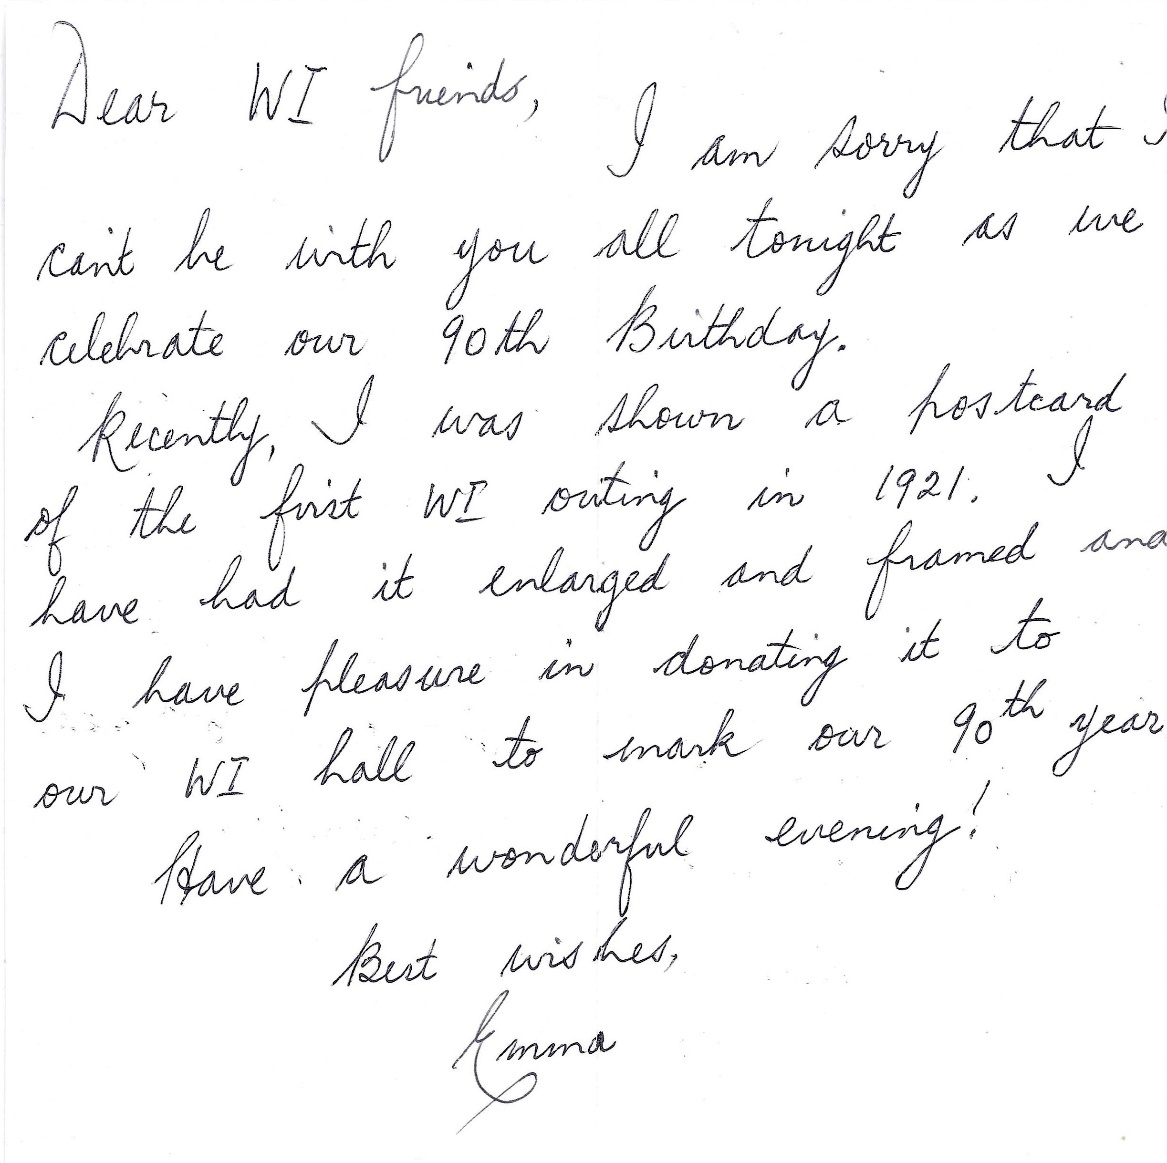 Dear WI friends,
I am sorry that I
can't be with you all tonight as we
celebrate our 90th Birthday.
Recently, I was shown a postcard
of the first WI outing in 1921. I
have had it enlarged and framed and
I have pleasure in donating it to
our WI hall to mark our 90th year
Have a wonderful evening!
Best wishes,
Emma